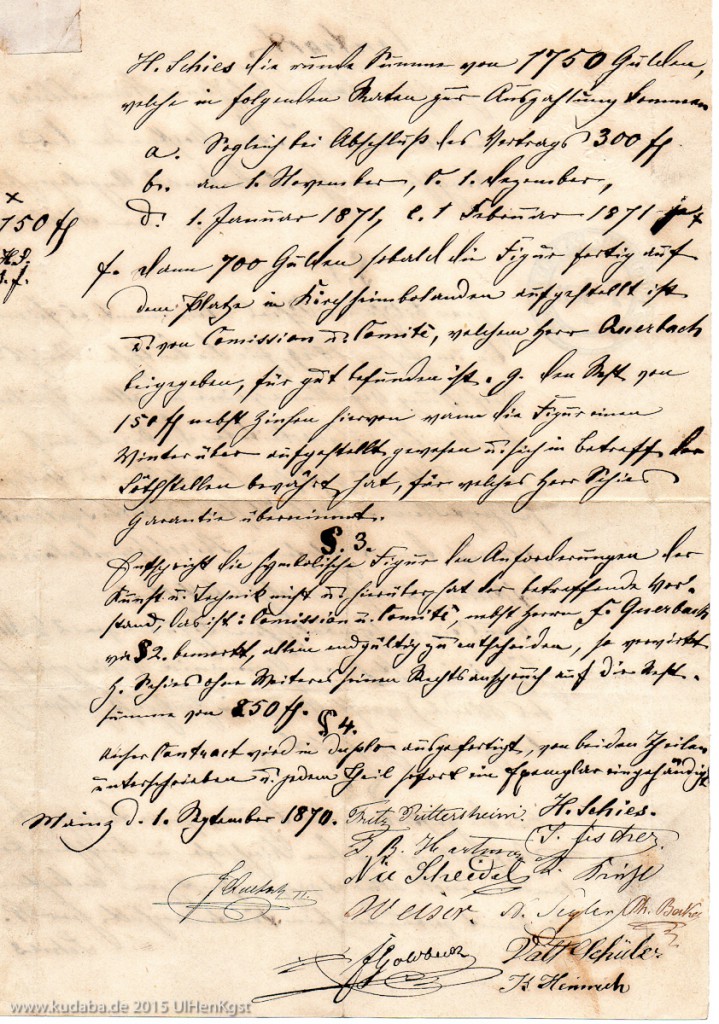 H. Schies die runde Summe von 1750 Gulden,
welche in folgenden Raten zur Auszahlung kommen
a. Sogleich bei Abschluß des Vertrags 300 fl
b. am 1. November, c. 1. Dezember,
d. 1. Januar 1871, e. 1 Februar 1871 je x
x
150 fl
H. S.
f. dann 700 Gulden sobald die Figur fertig auf
dem Platze in Kirchheimbolanden aufgestellt ist
u. von Comission u. Comité, welchem Herr Querbach
beigegeben, für gut befunden ist. g. den Rest von
150 fl nebst Zinsen hiervon wann die Figur einen
Winter über aufgestellt gewesen u. sich in Betreff der
Löthstellen bewährt hat, für welches Herr Schies
Garantie übernimmt.
§. 3.
Entspricht die symbolische Figur den Anforderungen der
Kunst u. Technik nicht u. hierüber hat der betreffende Vor-
stand, das ist: Comission u. Comité, nebst Herrn Querbach
wie §2. bemerkt, allein endgültig zu entscheiden, so verwirkt
H. Schies ohne Weiteres seinen Rechtsanspruch auf die Rest-
summe von 850 fl.
§ 4.
Dieser Contract wird in duplo ausgefertigt, von beiden Theilen
unterschrieben u. jedem Theil sofort ein Exemplar eingehändigt
Mainz d. 1. September 1870.
Fritz Rittersheim. H. Schies.
J. B. Hartman J. Fischer
Nic Scheidel
Weiser.
Schüler
Heinrich
www.kudaba.de 2015 UlHenKgst